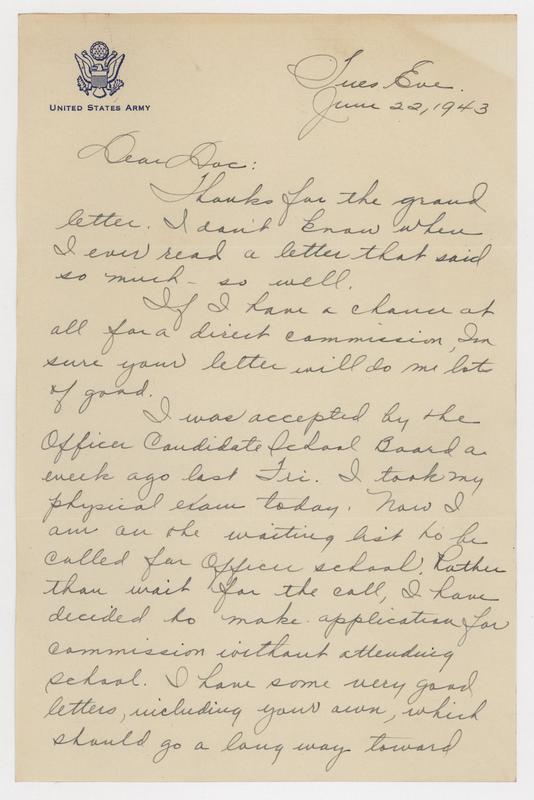 UNITED STATES ARMY
Tues Eve.
June 22, 1943
Dear Doc:
Thanks for the grand
letter. I don't know when
I ever read a letter that said
so much - so well.
If I have a chance at
all for a direct commission, I'm
sure your letter will do me lots
of good.
I was accepted by the
Officer Candidate School Board a
week ago last Fri. I took my
physical exam today. Now I
am on the waiting list to be
called for Officer school. Rather
than wait for the call, I have
decided to make application for
commission without attending
school. I have some very good
letters, including your own, which
should go a long way toward